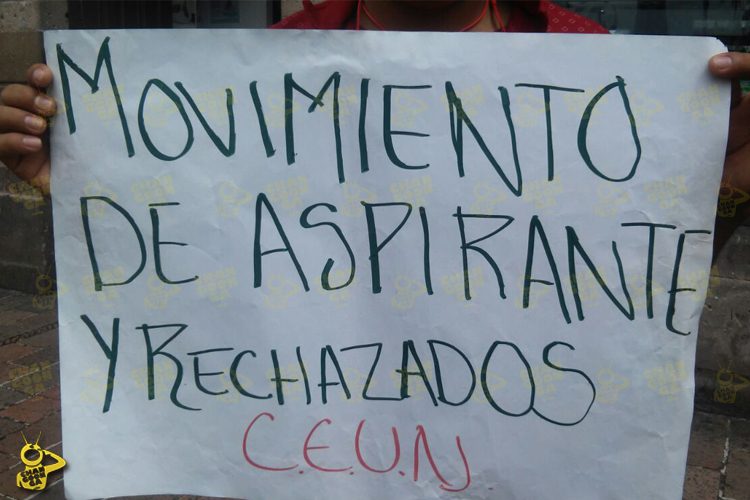 MOVIMIENTO
DE ASPIRANTE
Y RECHAZADOS
C.E.U.N.